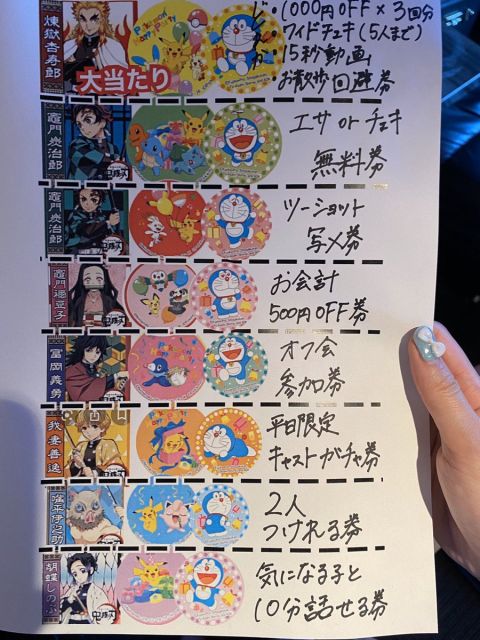 煉獄杏寿郎
大当たり
・1000円OFF × 3回分
・ワイドチェキ(5人まで)
・15秒動画
お散歩回避券
竈門炭治郎
エサ or チェキ
無料券
竈門炭治郎
ツーショット
写メ券
竈門禰豆子
お会計
500円OFF券
冨岡義勇
オフ会
参加券
我妻善逸
平日限定
キャストガチャ券
嘴平伊之助
2人
つけれる券
胡蝶しのぶ
気になる子と
10分話せる券